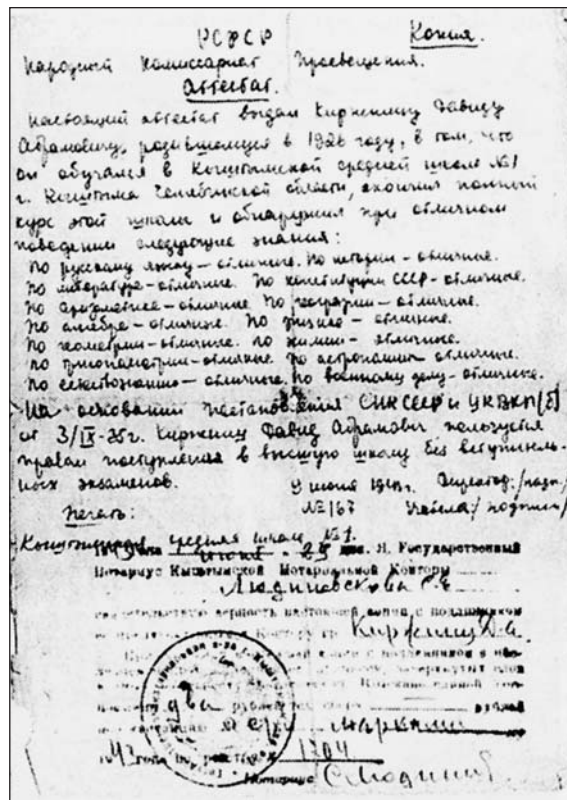 Копия.
РСФСР
Народный Комиссариат Просвещения.
Аттестат.
Настоящий аттестат выдан Киржницу Давиду
Абрамовичу, родившемуся в 1926 году, в том, что
он обучался в Кыштымской средней школе №1
г. Кыштыма Челябинской области, окончил полный
курс этой школы и обнаружил при отличном
поведении следующие знания:
По русскому языку – отличные. По истории – отличные.
По литературе – отличные. По конституции СССР – отличные.
По арифметике – отличные. По географии – отличные.
По алгебре – отличные. По физике – отличные.
По геометрии – отличные. По химии – отличные.
По тригонометрии – отличные. По астрономии отличные.
По естествознанию – отличные. По военному делу – отличные.
На основании постановления СНК СССР и ЦК ВКП(б)
от 3/IX-35г. Киржниц Давид Абрамович пользуется
правом поступления в высшую школу без вступитель-
ных экзаменов.
9 июня Директор: /подп./
Печать: №167 Учителя: /подписи/
Кыштымская средняя школа №1.
года июня 25 дня. Я, Государственный
Нотариус Кыштымской Нотариальной Конторы
Людиновскова
свидетельствую верность настоящей копии с подлинником
Контору гр. Киржниц Д.А.
копии с подлинником в
два рубля
марками
1943 года по реестру 1704
Нотариус